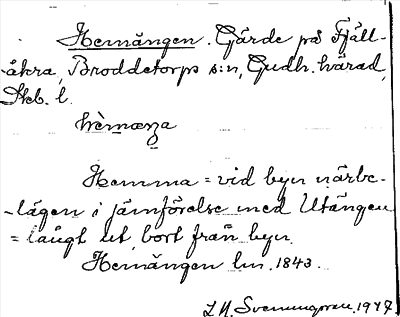 Hemängen. Gärde på Fjäll-
-åkra, Broddetorps s:n, Gudh. härad,
Skb. l.
hèmæŋa
Hemma = vid byn närbe-
-lägen i jämförelse med Utängen
= långt ut, bort från byn.
Hemängen lm. 1843.
L M. Svenungsson. 1947